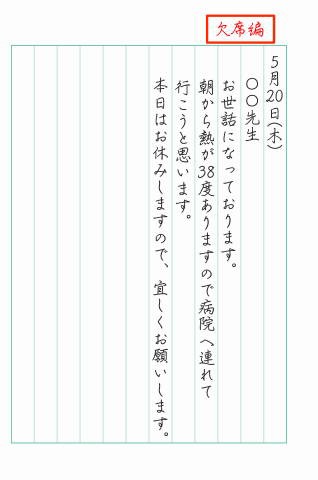 欠席編
5月20日(木)
〇〇先生
お世話になっております。
朝から熱が38度ありますので病院へ連れて
行こうと思います。
本日はお休みしますので、宜しくお願いします。